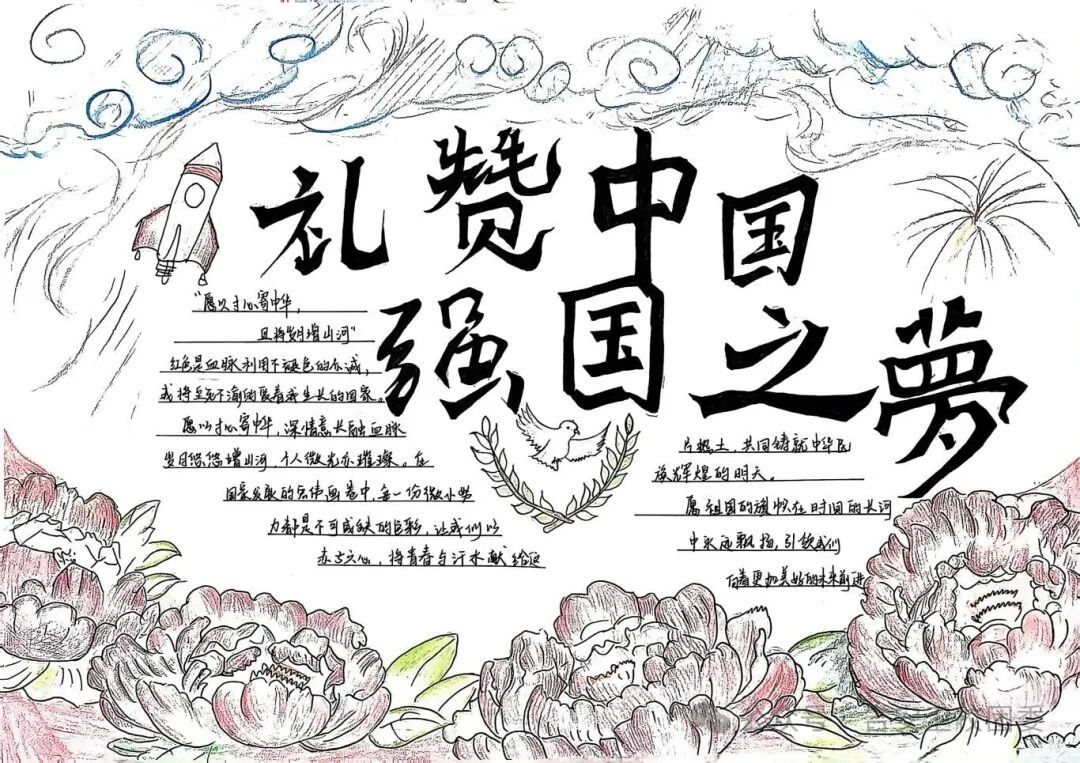 礼赞中国
强国之夢
“愿以寸心寄中华,
且将岁月增山河”
红色是血脉利用不褪色的赤诚,
或将至死不渝的爱着我生长的国家。
愿以寸心寄中华,深情意长融血脉
岁月悠悠增山河,个人微光亦璀璨。在
国家发展的宏伟画卷中,每一份微小
力都是不可或缺的色彩,让我们以
赤 心,将青春与汗水献给这
片热土,共同铸就中华民
族辉煌的明天。
愿祖国的旗帜在时间的长河
中永远飘扬,引领我们
向着更加美好的未来前进